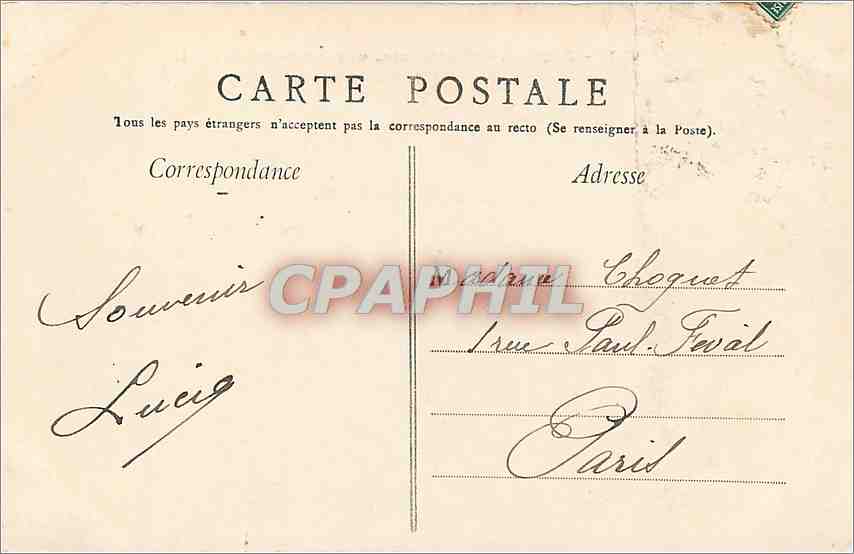 CARTE POSTALE
Tous les pays étrangers n'acceptent pas la correspondance au recto (Se renseigner à la Poste).
Correspondance
Adresse
Souvenir
Lucie
CPAPHIL
Madame Choquet
1 rue Paul-Féval
Paris